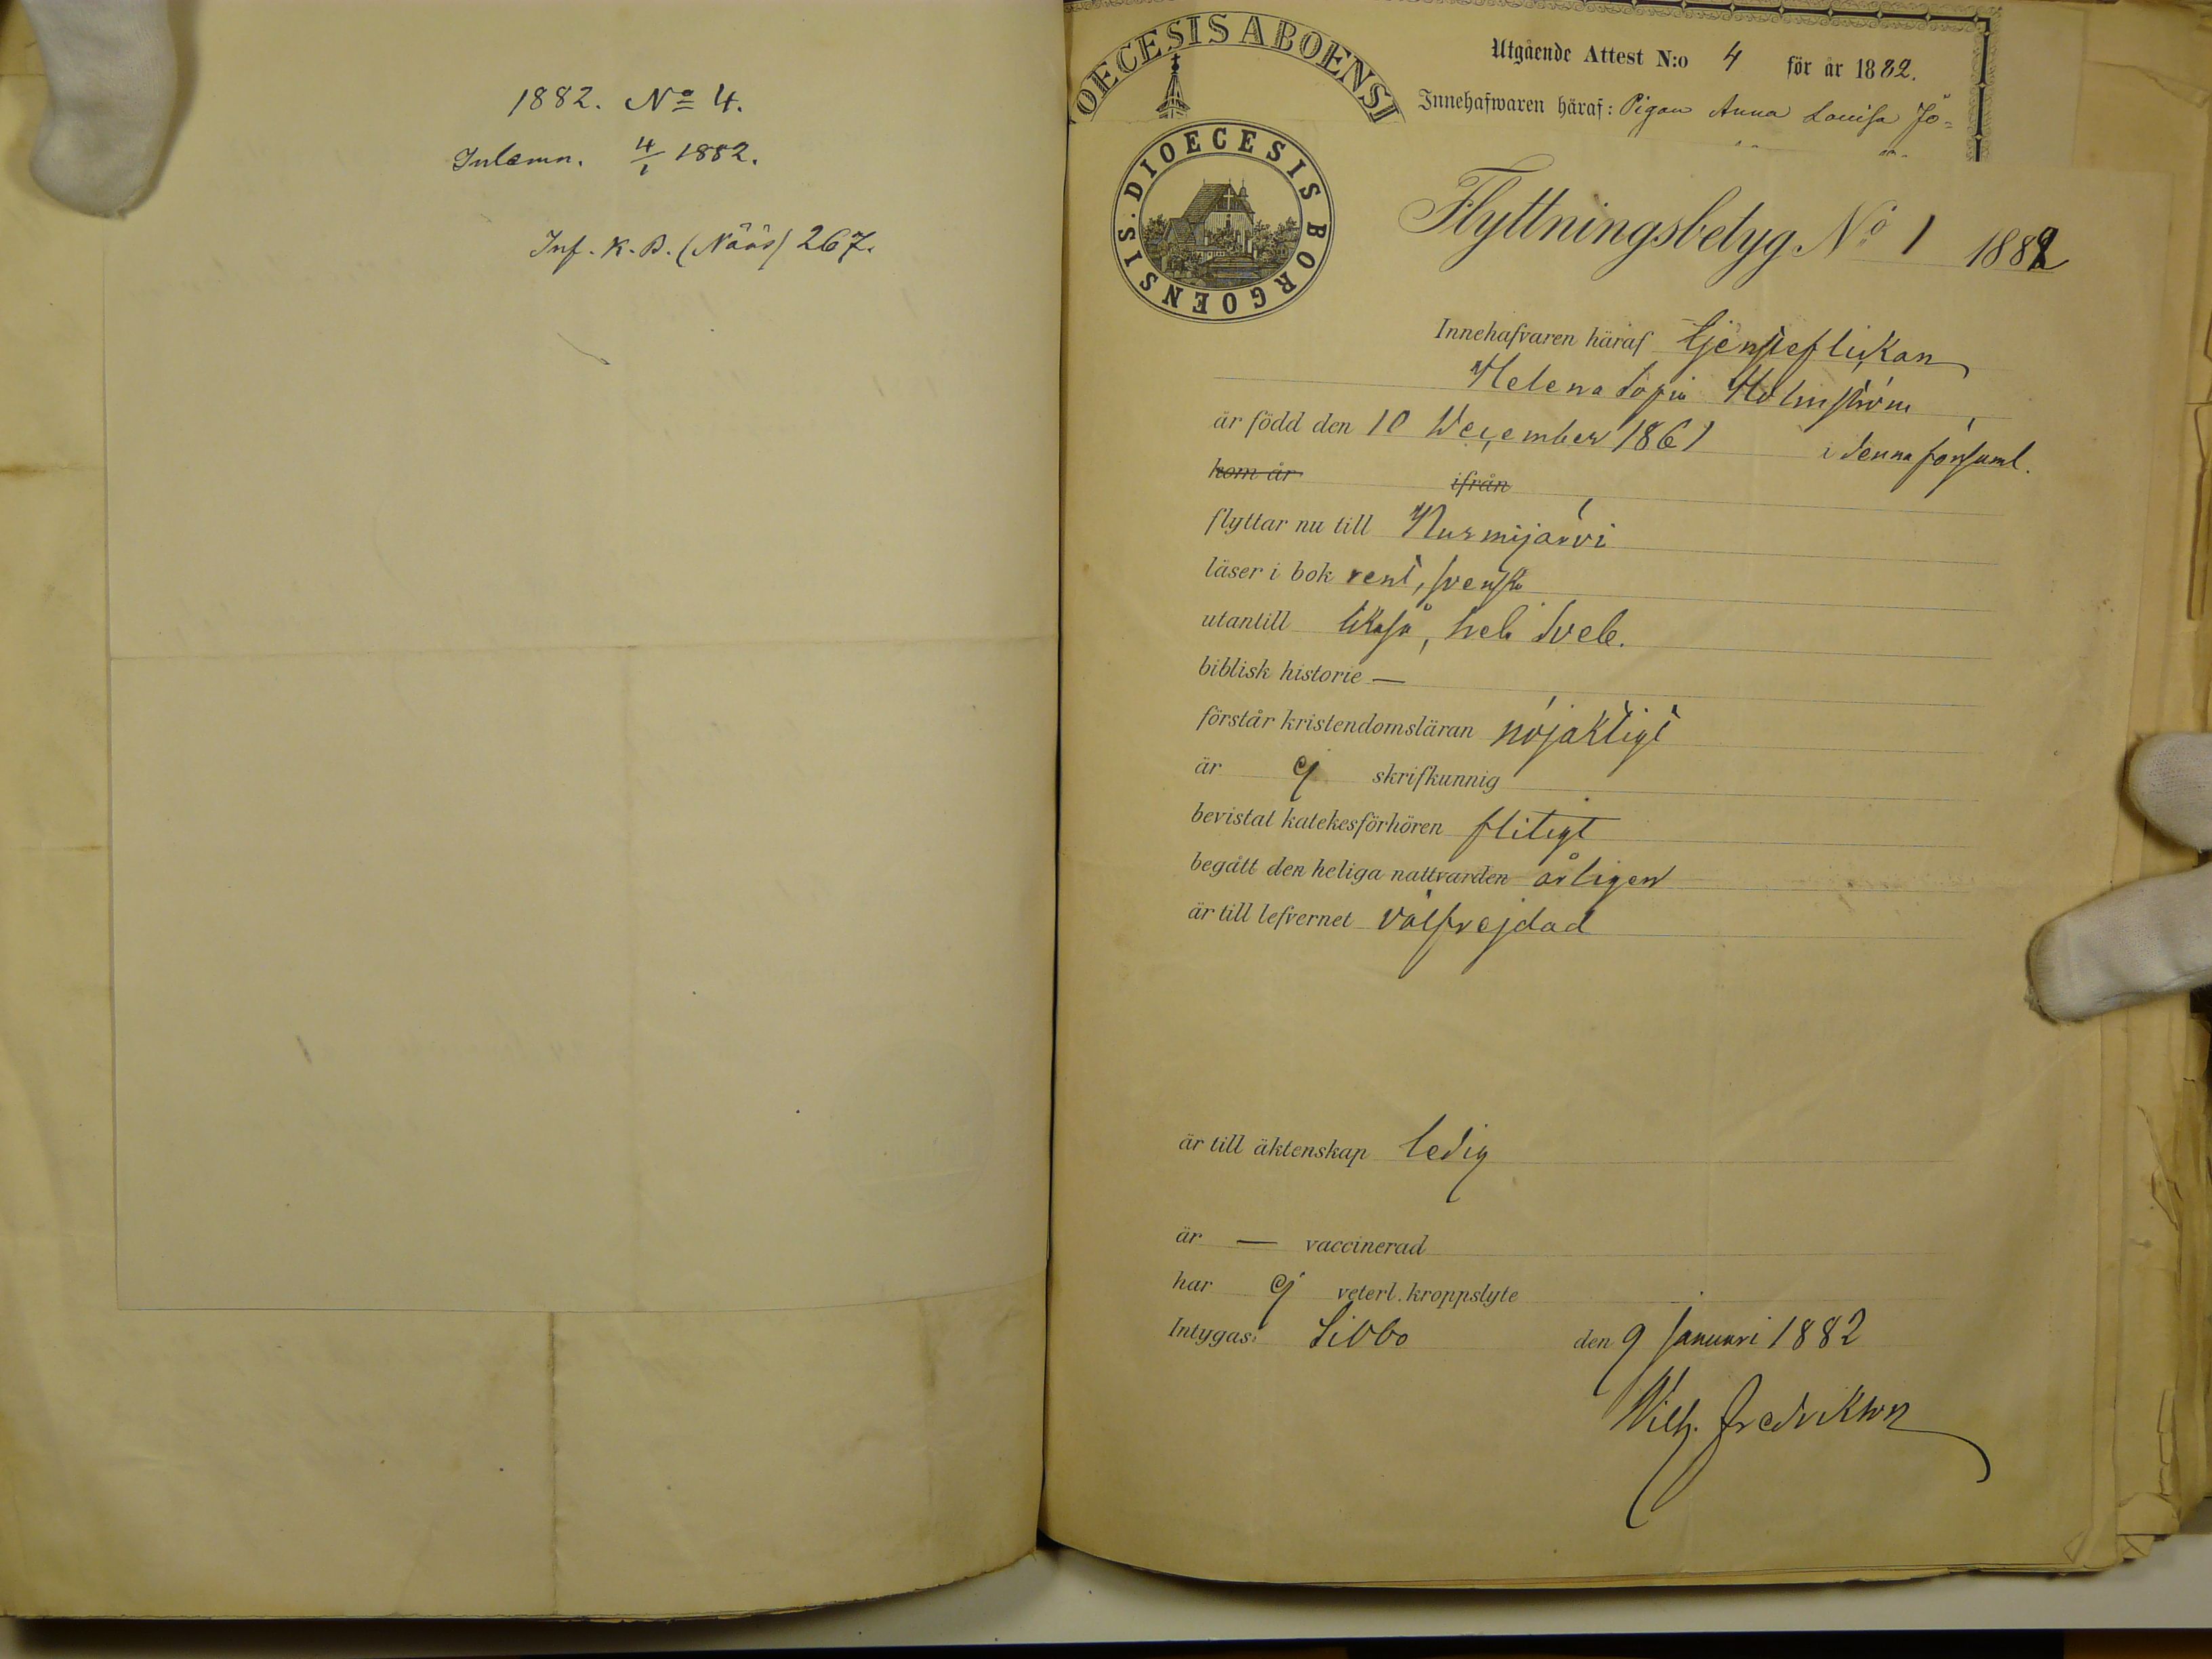 1882. No 4.
Inlemn. 4/1 1882.
Inf. K. B. (Nääs) 267.
OECESIS ABOENSI
Utgående Attest N:o 4 för år 1882.
Innehafwaren häraf: Pigan Anna Lovisa Jo=
DIOECESIS BORGOENSIS.
Flyttningsbetyg No 1 1882
Innehafvaren häraf tjensteflickan
Helena Sofia Holmström
är född den 10 December 1861 i denna församl.
kom år ifrån
flyttar nu till Nurmijärvi
läser i bok rent, svenska
utantill likaså, hela Sveb.
biblisk historie —
förstår kristendomsläran nöjaktigt
är ej skrifkunnig
bevistat katekesförhören flitigt
begått den heliga nattvarden årligen
är till lefvernet välfrejdad
är till äktenskap ledig
är — vaccinerad
har ej veterl. kroppslyte
Intygas: Sibbo den 9 Januari 1882
Wilh. Fredrikson